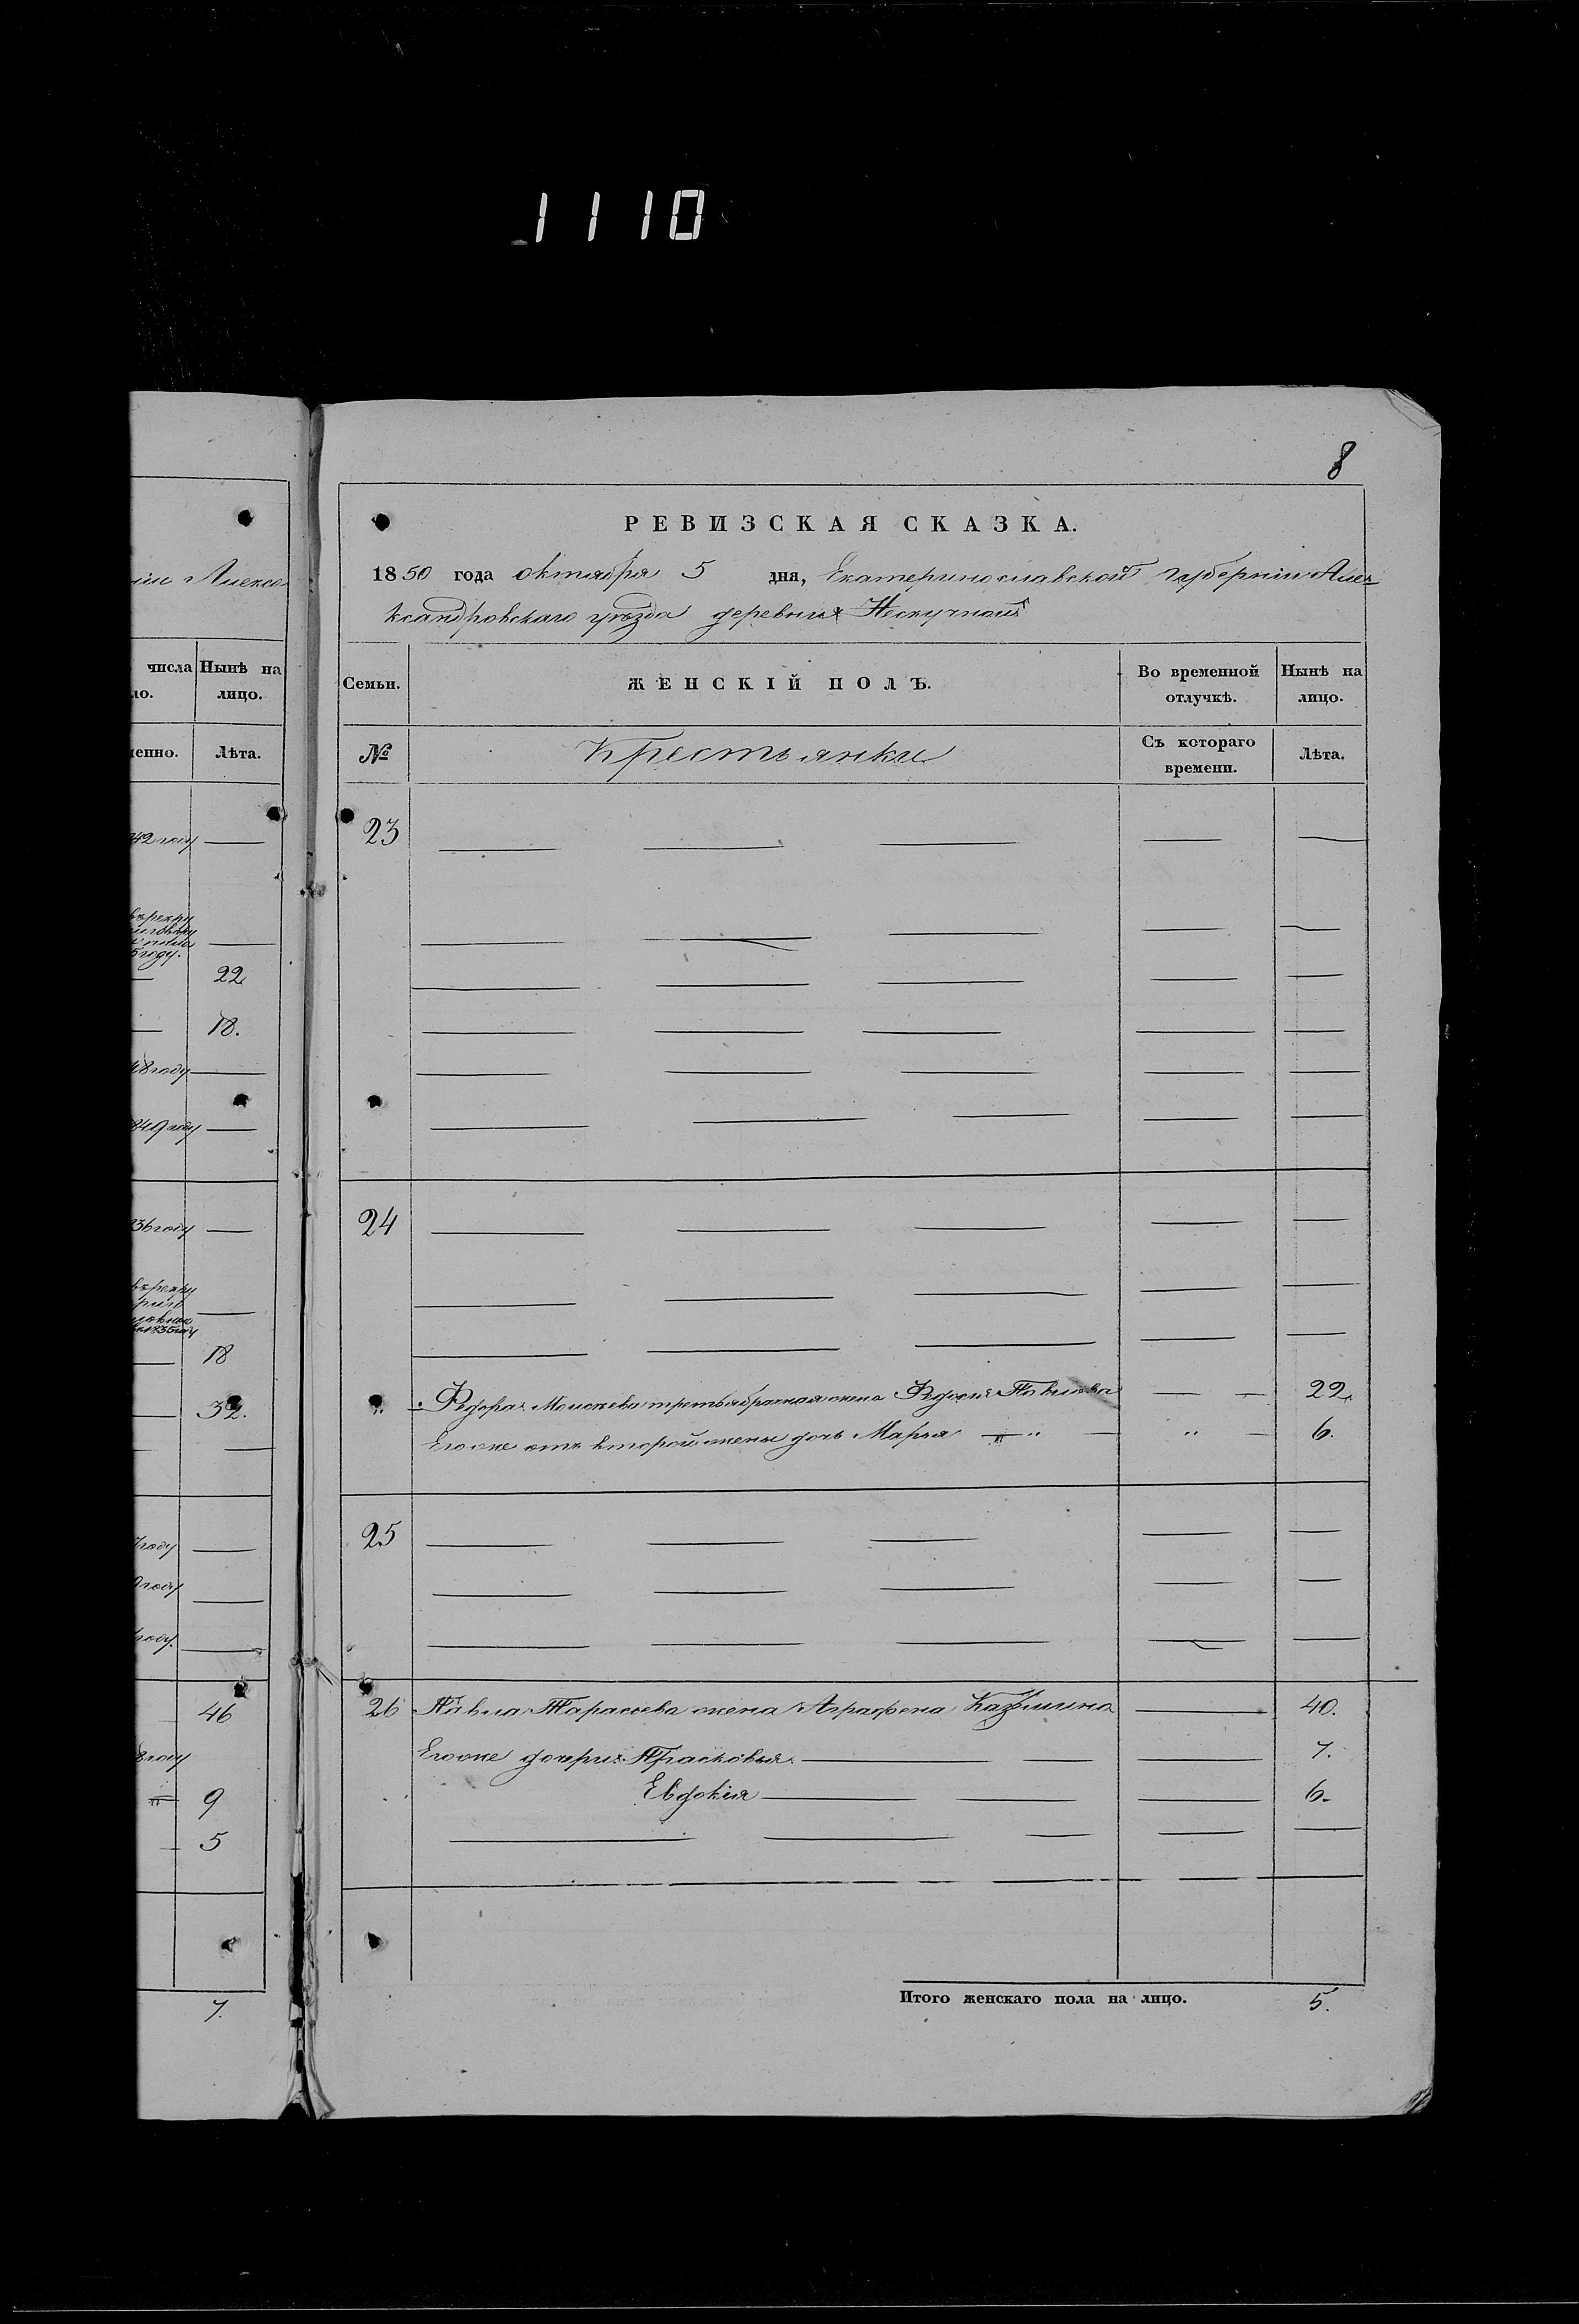 1110
8
РЕВИЗСКАЯ СКАЗКА.
1850 года октября 5 дня, Екатеринославской губерніи Алек-
ксандровскаго уѣзда деревни Нескучной
Семьи. ЖЕНСКІЙ ПОЛЪ. Во временной отлучкѣ. Нынѣ на лицо.
№ Крестьянки Съ котораго времени. Лѣта.
23
24
Федора Моисеева третьебрачная жена Федосья Павлова 22.
Его же отъ второй жены дочь Марья " " 6.
25
26 Павла Тарасова жена Аграфена 40.
Его же дочери Прасковья 7.
Евдокія 6.
Итого женскаго пола на лицо. 5.
Алексa
числа Нынѣ на
ло. лицо.
менно. Лѣта.
42 году
5 году.
22
18.
48 году
849 году
36 году
18
32.
году
году
году.
46
году
9
5
7.